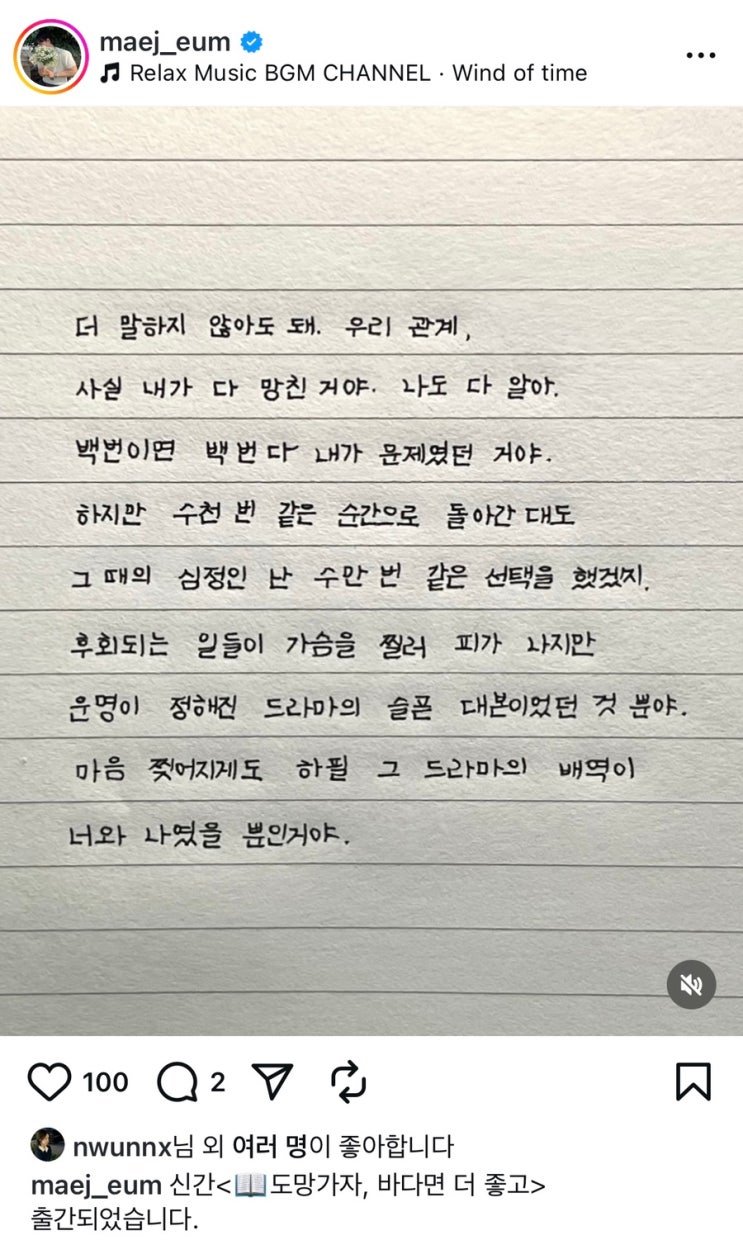 maej_eum
Relax Music BGM CHANNEL · Wind of time
더 말하지 않아도 돼. 우리 관계,
사실 내가 다 망친 거야. 나도 다 알아.
백번이면 백 번 다 내가 문제였던 거야.
하지만 수천 번 같은 순간으로 돌아간 대도
그 때의 심정인 난 수만 번 같은 선택을 했겠지.
후회되는 일들이 가슴을 찔러 피가 나지만
운명이 정해진 드라마의 슬픈 대본이었던 것 뿐야.
마음 찢어지게도 하필 그 드라마의 배역이
너와 나였을 뿐인거야.
100 2
nwunnx님 외 여러 명이 좋아합니다
maej_eum 신간<📖도망가자, 바다면 더 좋고>
출간되었습니다.